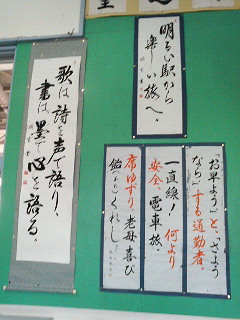 明るい駅から
楽しい旅へ。
歌は、詩を声で語り、
書は、墨で心を語る。
「お早よう」と、「さよう
なら」する通勤者。
一直線!何より
安全、電車旅。
席ゆずり、老母喜び
飴くれし。